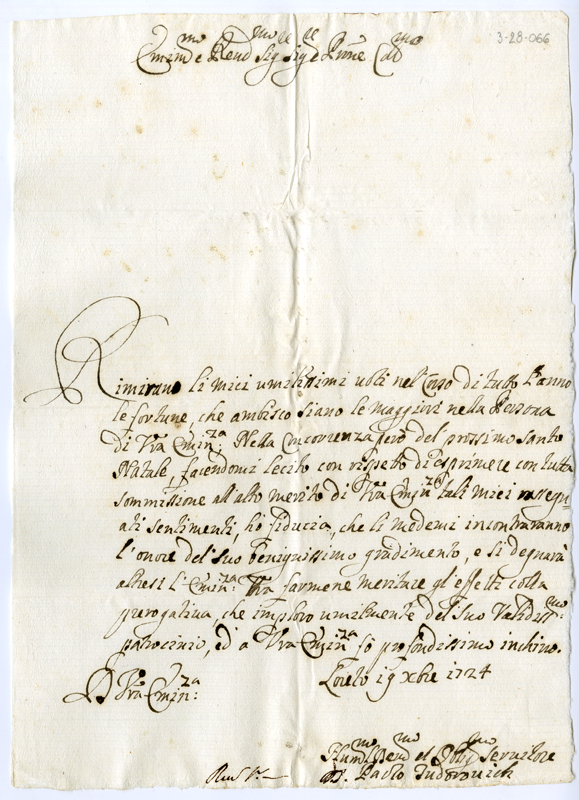 3-28-066
Emin.mo e Rend.mo Sig.re Sig.re e Prone Col.mo
Rimirano li miei umilissimi voti nel Corso di tutto l'anno
le fortune, che ambisco siano le maggiori nella Persona
di Vra Emin.za; Nella Concorrenza però del prossimo Santo
Natale, facendomi lecito con rispetto di esprimere con tutta
sommissione all'alto merito di Vra Emin.za tali miei rassegn=
ati sentimenti, hò fiducia, che li medemi incontreranno
l'onore del suo benignissimo gradimento, e si degnarà
altresi l'Emin:za Vra farmene meritare gl'effetti colla
prerogativa, che imploro umilmente del suo Validiss.mo
patrocinio, ed a Vra Emin.za fò profondissimo inchino.
D Vra Emin:za Loreto 19 xbre 1724
Humil.mo Dev.mo et Obblig.mo Servitore
Paolo